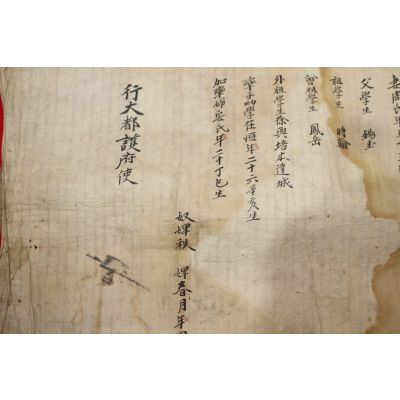 妻周氏年
父學生 錫圭
祖學生 時翰
曾祖學生 鳳岳
外祖學生徐興培本達城
率子幼學在恒年二十六辛亥生
加率婦安氏年二十丁巳生
奴婢秩 婢春月年
行大都護府使